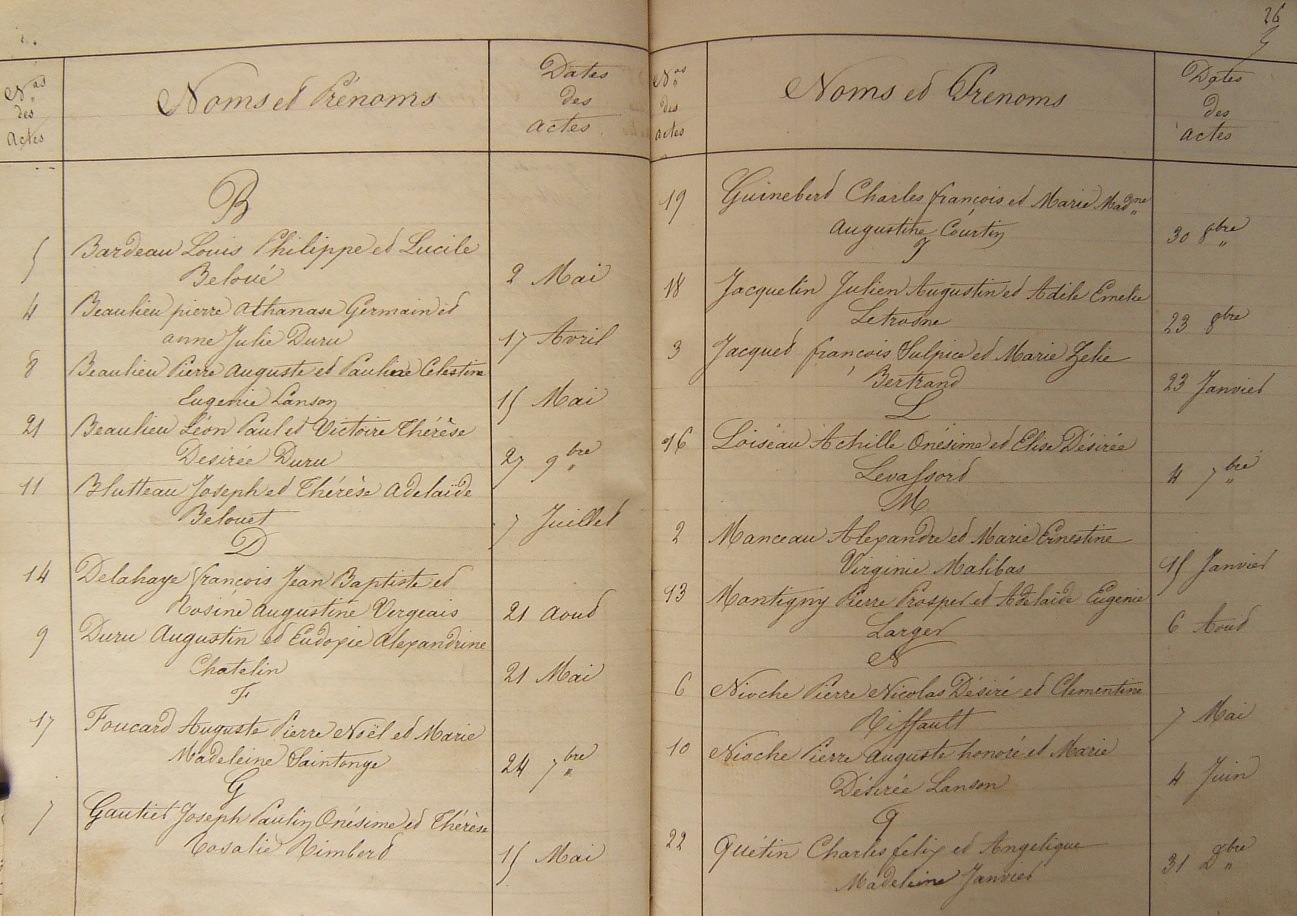 Nos des Actes
Noms et Prénoms
Dates des actes
B
5 Bardeau Louis Philippe et Lucile
Beloué 2 Mai
4 Beaulieu pierre athanase Germain et
anne Julie Duru 17 Avril
8 Beaulieu Pierre auguste et Pauline Celestine
Eugenie Lanson 15 Mai
21 Beaulieu Léon Paul et Victoire Thérèse
Desirée Duru 27 9bre
11 Blutteau Joseph et Thérèse adelaïde
Belouet 7 Juillet
D
14 Delahaye françois Jean Baptiste et
Rosine augustine Vergeais 21 aout
9 Duru Augustin et Eudoxie Alexandrine
Chatelin 21 Mai
F
17 Foucard Auguste Pierre Noël et Marie
Madeleine Saintonge 24 7bre
G
7 Gautier Joseph Paulin Onésime et Thérèse
Rosalie Rimbert 15 Mai
26
Nos des actes
Noms et Prenoms
Dates des actes
19 Guinebert Charles françois et Marie Madne
Augustine Courtin 30 8bre
J
18 Jacquelin Julien Augustin et Adèle Emelie
Letrosne 23 8bre
3 Jacquet françois Sulpice et Marie Zelie
Bertrand 23 Janvier
L
16 Loiseau Achille Onésime et Elise Désirée
Levassort 4 7bre
M
2 Manceau Alexandre et Marie Ernestine
Virginie Malibas 15 Janvier
13 Montigny Pierre Prosper et Adelaïde Eugenie
Larger 6 Aout
N
6 Nioche Pierre Nicolas Désiré et Clementine
Riffault 7 Mai
10 Nioche Pierre Auguste honoré et Marie
Désirée Lanson 4 Juin
Q
22 Quétin Charles felix et Angelique
Madeleine Janvier 31 Xbre